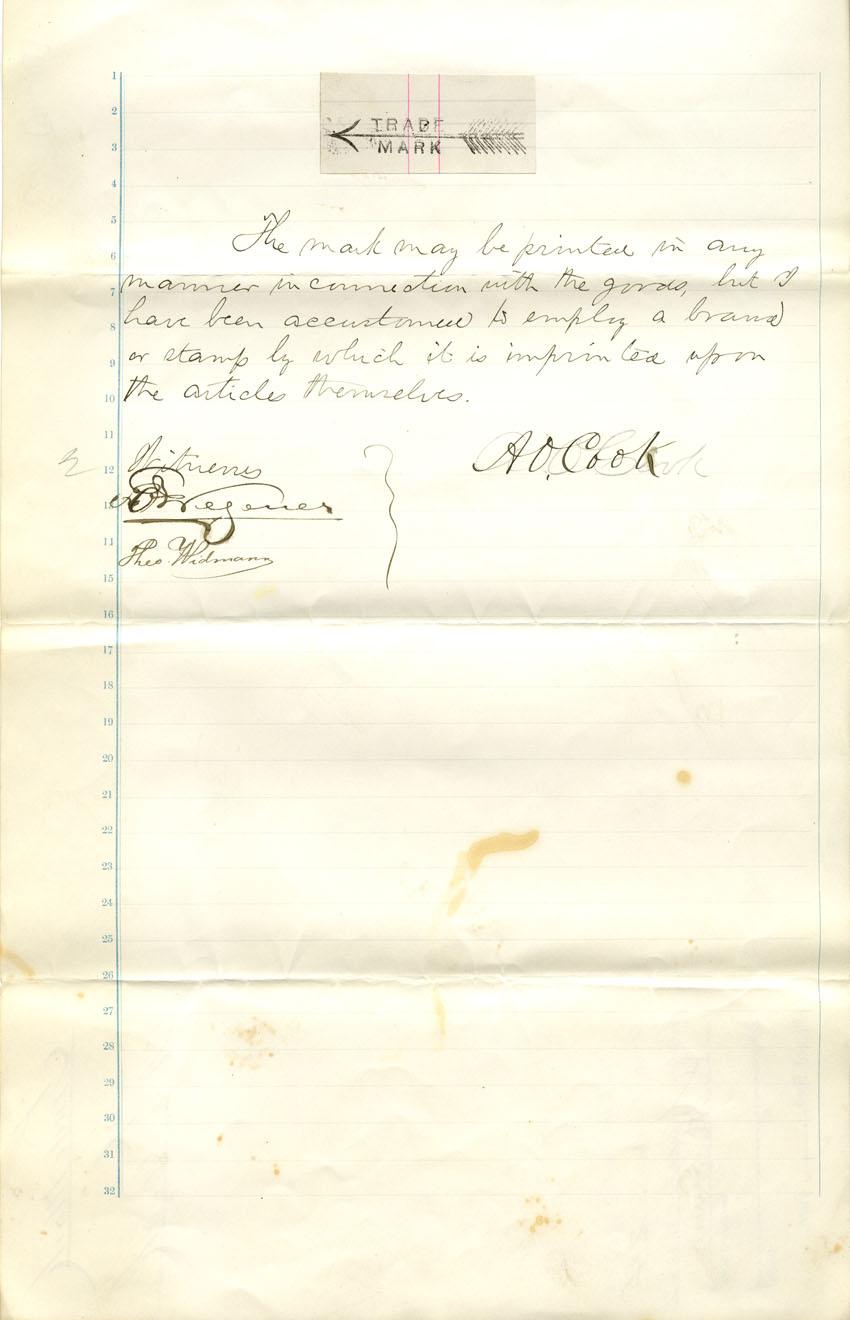 1
2
3
4
5
6
7
8
9
10
11
12
13
14
15
16
17
18
19
20
21
22
23
24
25
26
27
28
29
30
31
32
TRADE
MARK
The mark may be printed in any
manner in connection with the goods, but I
have been accustomed to employ a brand
or stamp by which it is imprinted upon
the articles themselves.
Witness
A. O. Cook
Wegener
Theo. Widmann